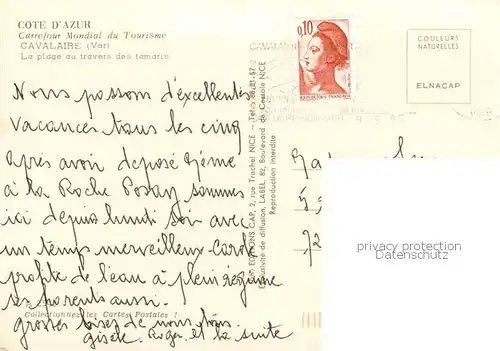 COTE D'AZUR
Carrefour Mondial du Tourisme
CAVALAIRE (Var)
La plage au travers des tamaris
0,10
REPUBLIQUE FRANÇAISE
COULEURS
NATURELLES
ELNACAP
Nous passons d'excellentes
vacances tous les cinq
après avoir déposé
à la Roche Posay sommes
ici depuis lundi soir avec
un temps merveilleux
profite de l'eau à plein régime
ses parents aussi.
grosses bises de nous tous
gisèle Roger et la suite
Collectionnez les Cartes Postales !
EDITIONS CAP, 2, rue Trachel NICE - Tél.
Exclusivité de diffusion, LABEL, 82, Boulevard de Cessole NICE
Reproduction interdite
72
privacy protection
Datenschutz